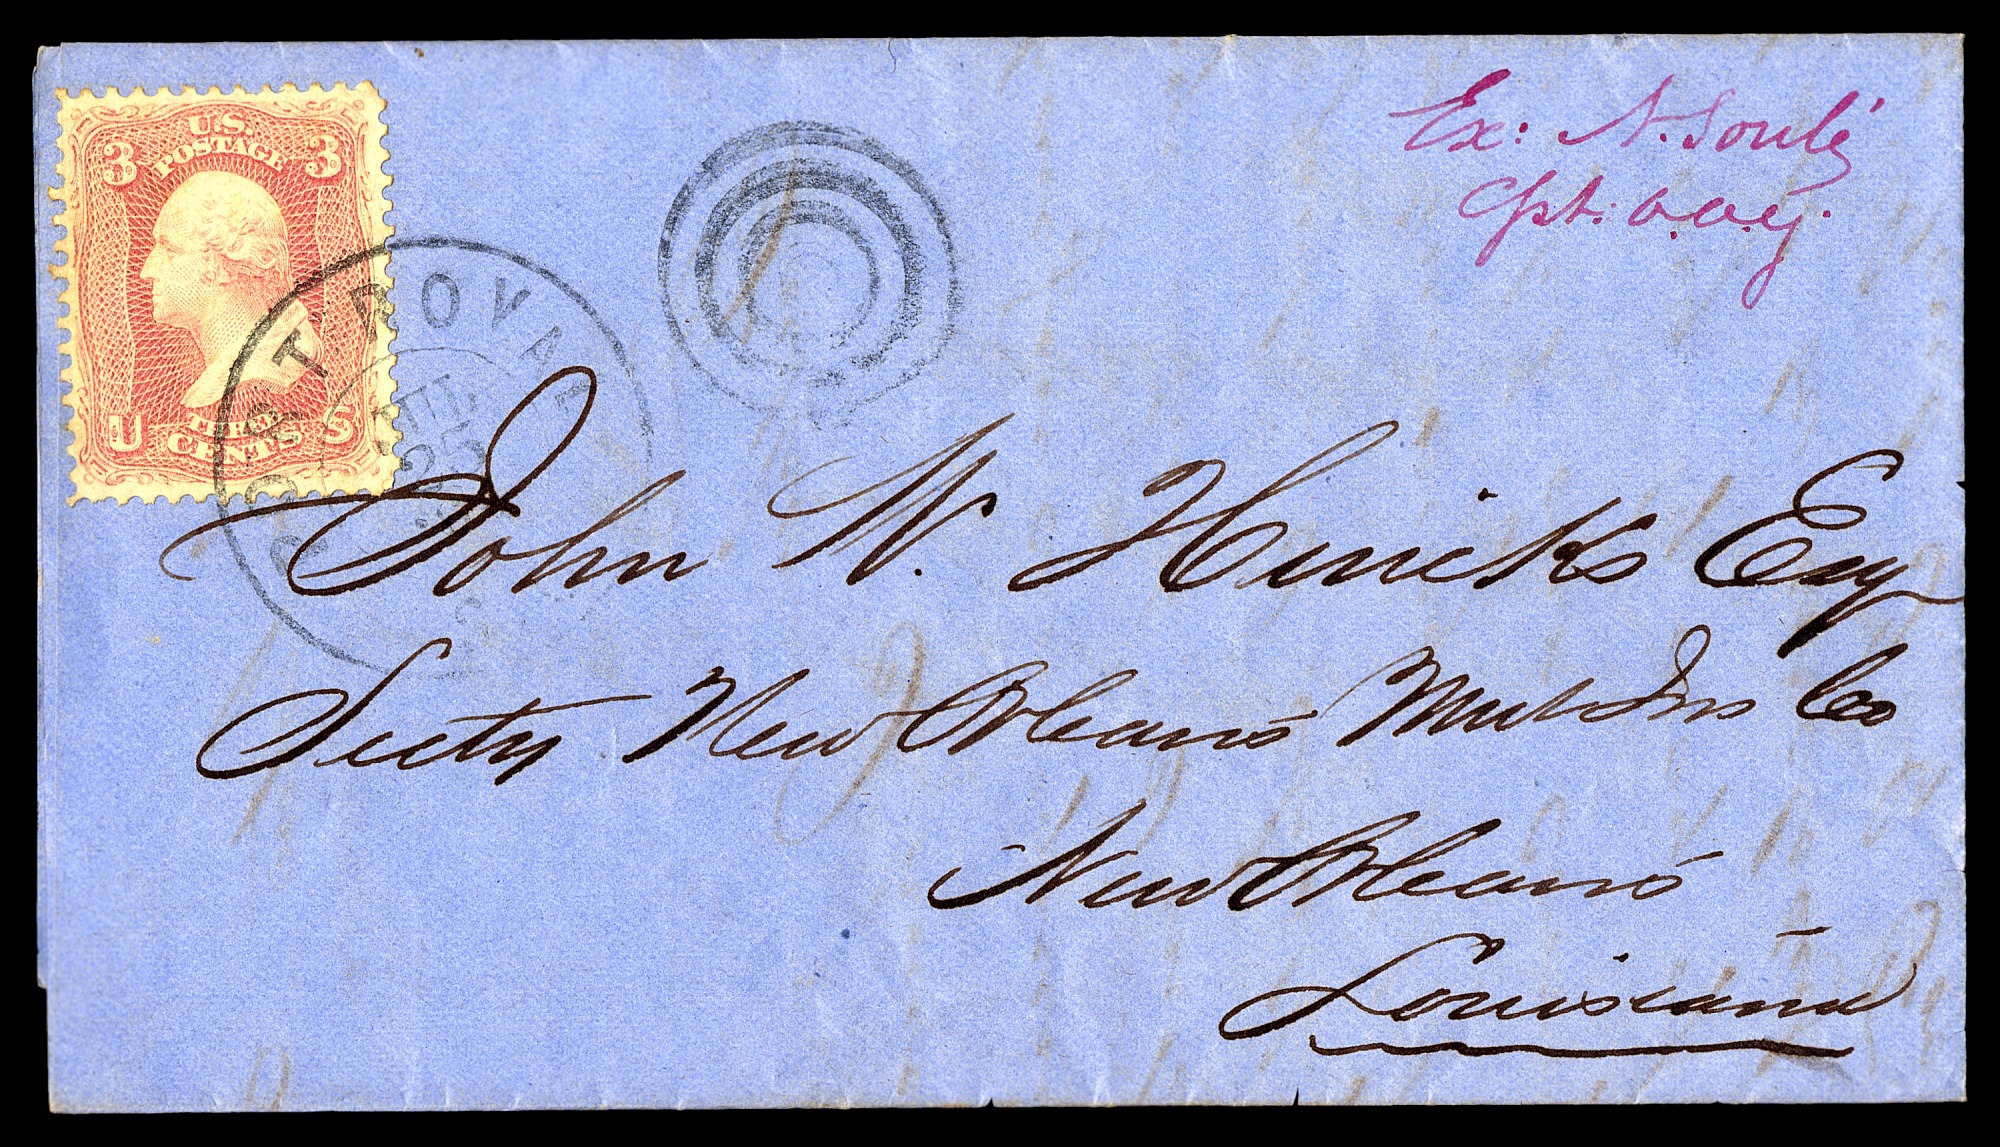 U.S.
POSTAGE
3 3
THREE
CENTS
U S
PORT ROYAL
JUL
25
S.C.
Ex: N. Soulé
Cpt:
John W. Hincks Esq
Secty New Orleans Mut Ins Co
New Orleans
Louisiana